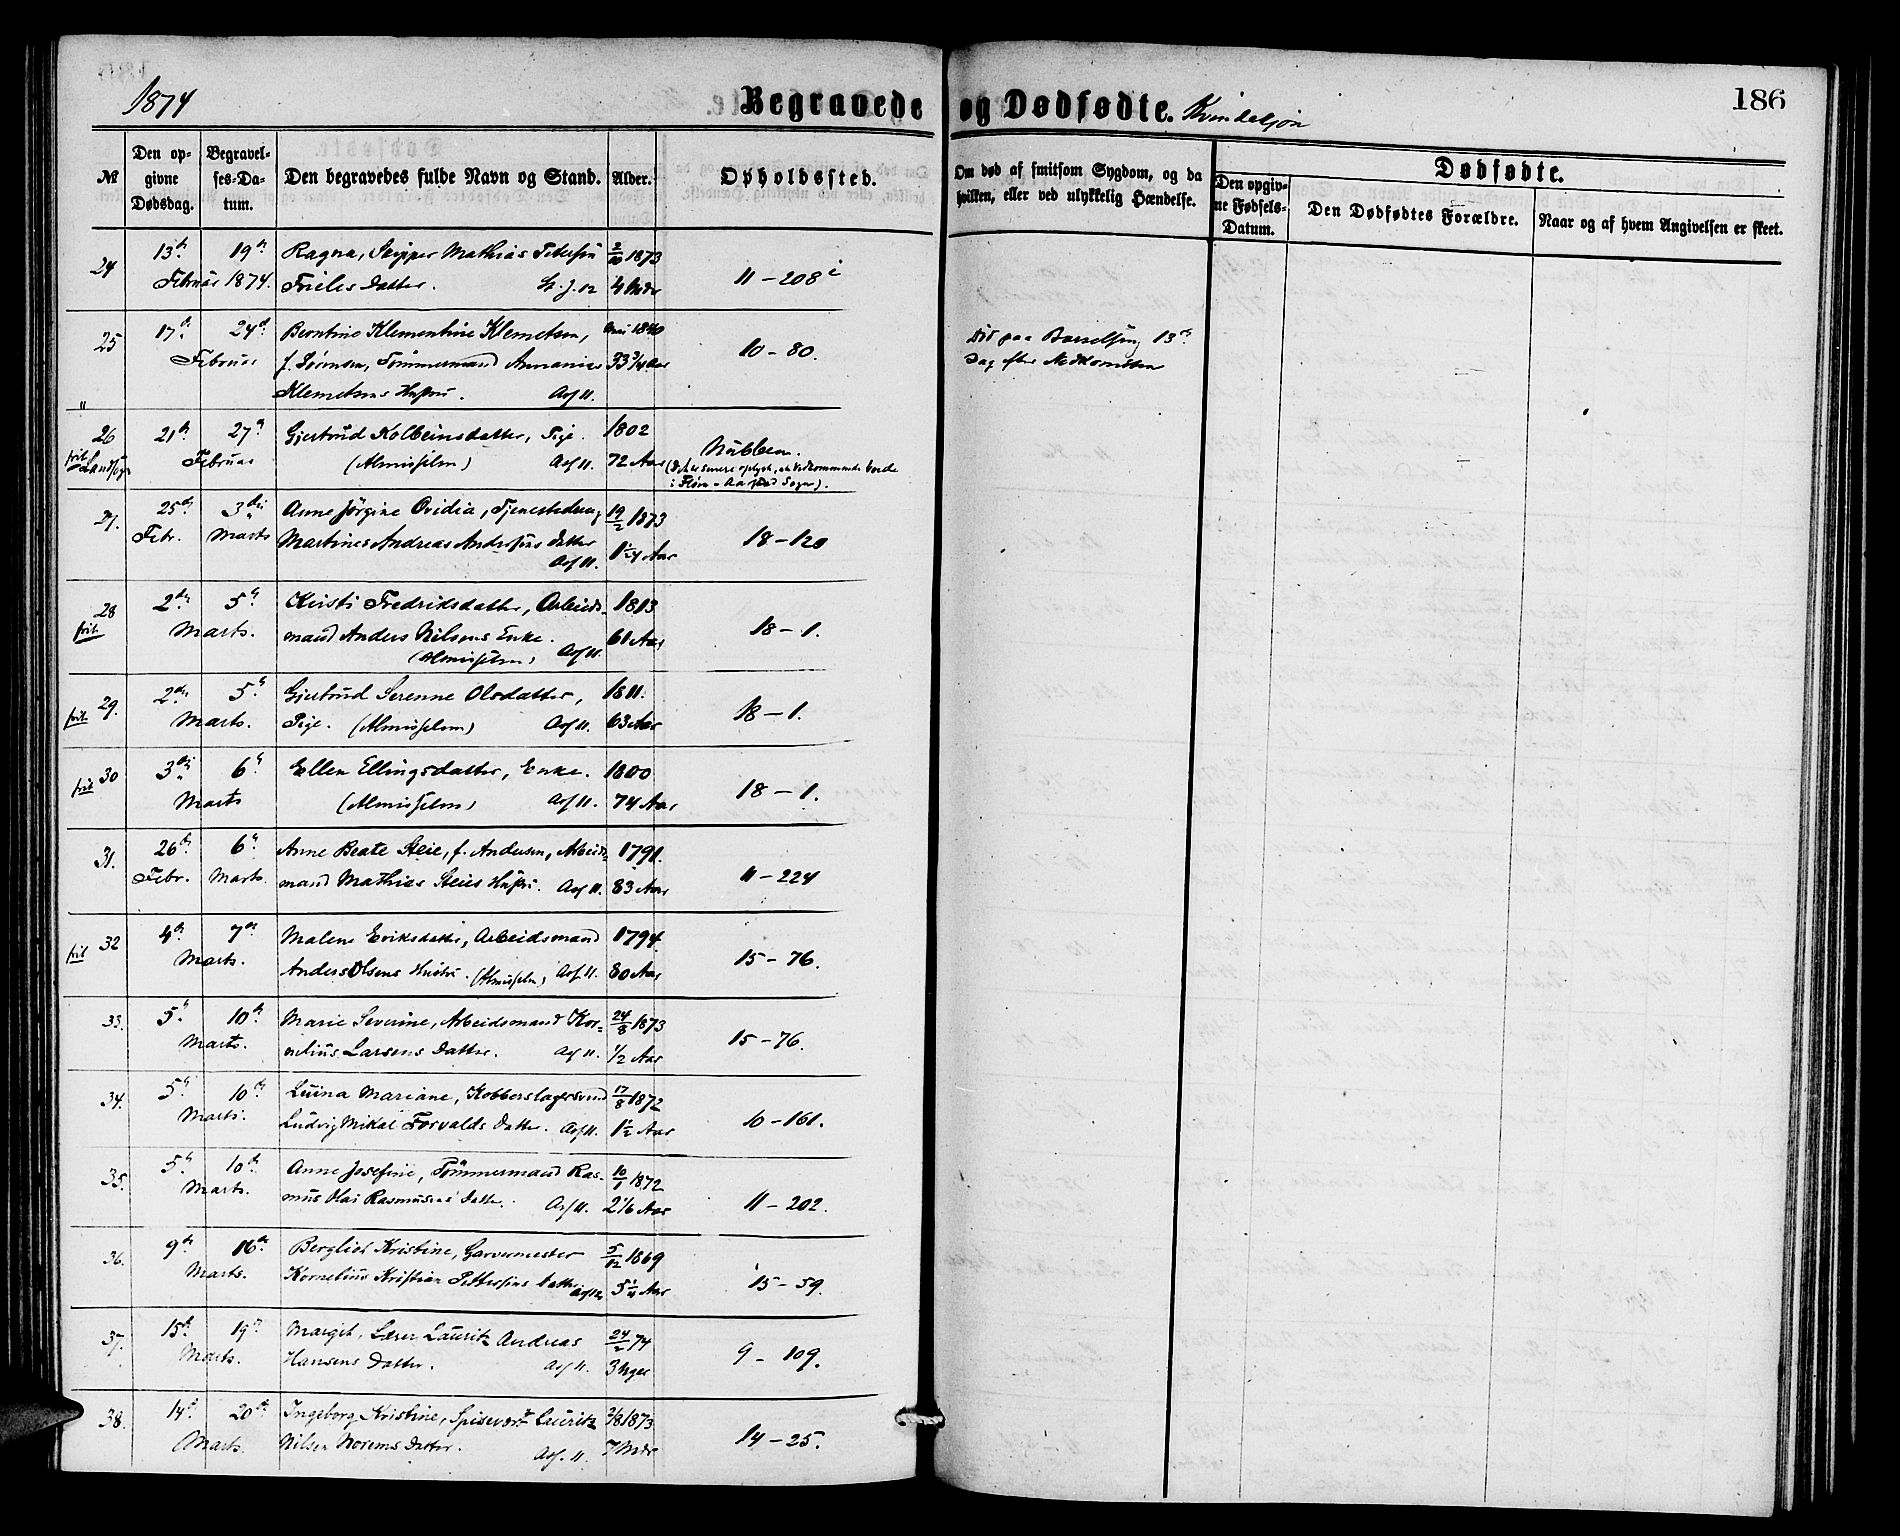 1874
Begravede og Dødfødte. Kvindekjøn
186
№
Den opgivne Dødsdag.
Begravelses-Datum.
Den begravedes fulde Navn og Stand.
Alder.
Opholdssted.
Om død af smitsom Sygdom, og da hvilken, eller ved ulykkelig Hændelse.
Dødfødte.
Den opgivne Fødsels-Datum.
Den Dødfødtes Forældre.
Naar og af hvem Angivelsen er skeet.
24 13de 19de Ragna, Skipper Mathias Petersen 2/10 1873
Februar 1874. Frieles Datter. 4 Mdr 11 – 208
25 17de 24de Berntine Klementine Klemetsen, Mai 1840
Februar f. Sørensen, Tømmermand Annanias 33 3/4 Aar 10 – 80.
Klemetsens Hustru. Asf 11.
Død paa Barselseng 13de
Dag efter Nedkomsten
26 21de 27de Gjertrud Kolbeinsdatter, Pige. 1802
frit Landsogn Februar (Almisselem) Asf 11. 72 Aar Nubben.
(Det er senere oplyst, at Vedkommende boede
i Aarstad Sogn).
27. 25de 3die Anne Jörgine Ovidia, Tjenestedreng 19/2 1873
Febr. Marts Martines Andreas Andersens Datter 18 – 120
Asf 11.
28 2den 5te Kirsti Fredriksdatter, Arbeids- 1813
frit. Marts. mand Anders Nilsens Enke. 61 Aar 18 – 1.
(Almisselem) Asf 11.
29. 2den 5te Gjertrud Serenne Olsdatter, 1811.
frit. Marts. Pige. (Almisselem) Asf 11. 63 Aar 18 – 1.
30 3die 6te Ellen Ellingsdatter, Enke. 1800
frit Marts (Almisselem) Asf 11. 74 Aar 18 – 1.
31. 26de 6te Anne Beate Steie, f. Andersen, Arbeids- 1791.
Febr. Marts. mand Mathias Steies Hustru. Asf 11. 83 Aar 11 – 224
32 4de 7de Malene Eriksdatter, Arbeidsmand 1794
frit Marts. Anders Olsens Hustru. (Almisselem) Asf 11. 80 Aar 15 – 76.
33. 5te 10de Marie Severine, Arbeidsmand Kor- 24/8 1873
Marts. nelius Larsens Datter. Asf 11. 1/2 Aar 15 – 76.
34. 5te 10de Luina Mariane, Kobberslagersvend 17/8 1872
Marts. Ludvig Mikal Torvalds Datter. Asf 11. 1 1/2 Aar 10 – 161.
35. 5te 10de Anne Josefine, Tömmermand Ras- 10/1 1872
Marts. mus Olai Rasmusens Datter. Asf 11. 2 1/6 Aar 11 – 202.
36. 9de 16de Berglied Kristine, Garvermester 5/12 1869
Marts. Kornelius Kristian Pettersens Datter 15 – 59.
37. 15de 19de Margit, Lærer Lauritz Andreas 24/2 74
Marts. Hansens Datter. Asf 11. 3 Uger 9 – 109.
38. 14de 20de Ingeborg Kristine, Spisevært Lauritz 2/8 1873
Marts. Nilsen Norems Datter. Asf. 11. 7 Mdr 14 – 25.